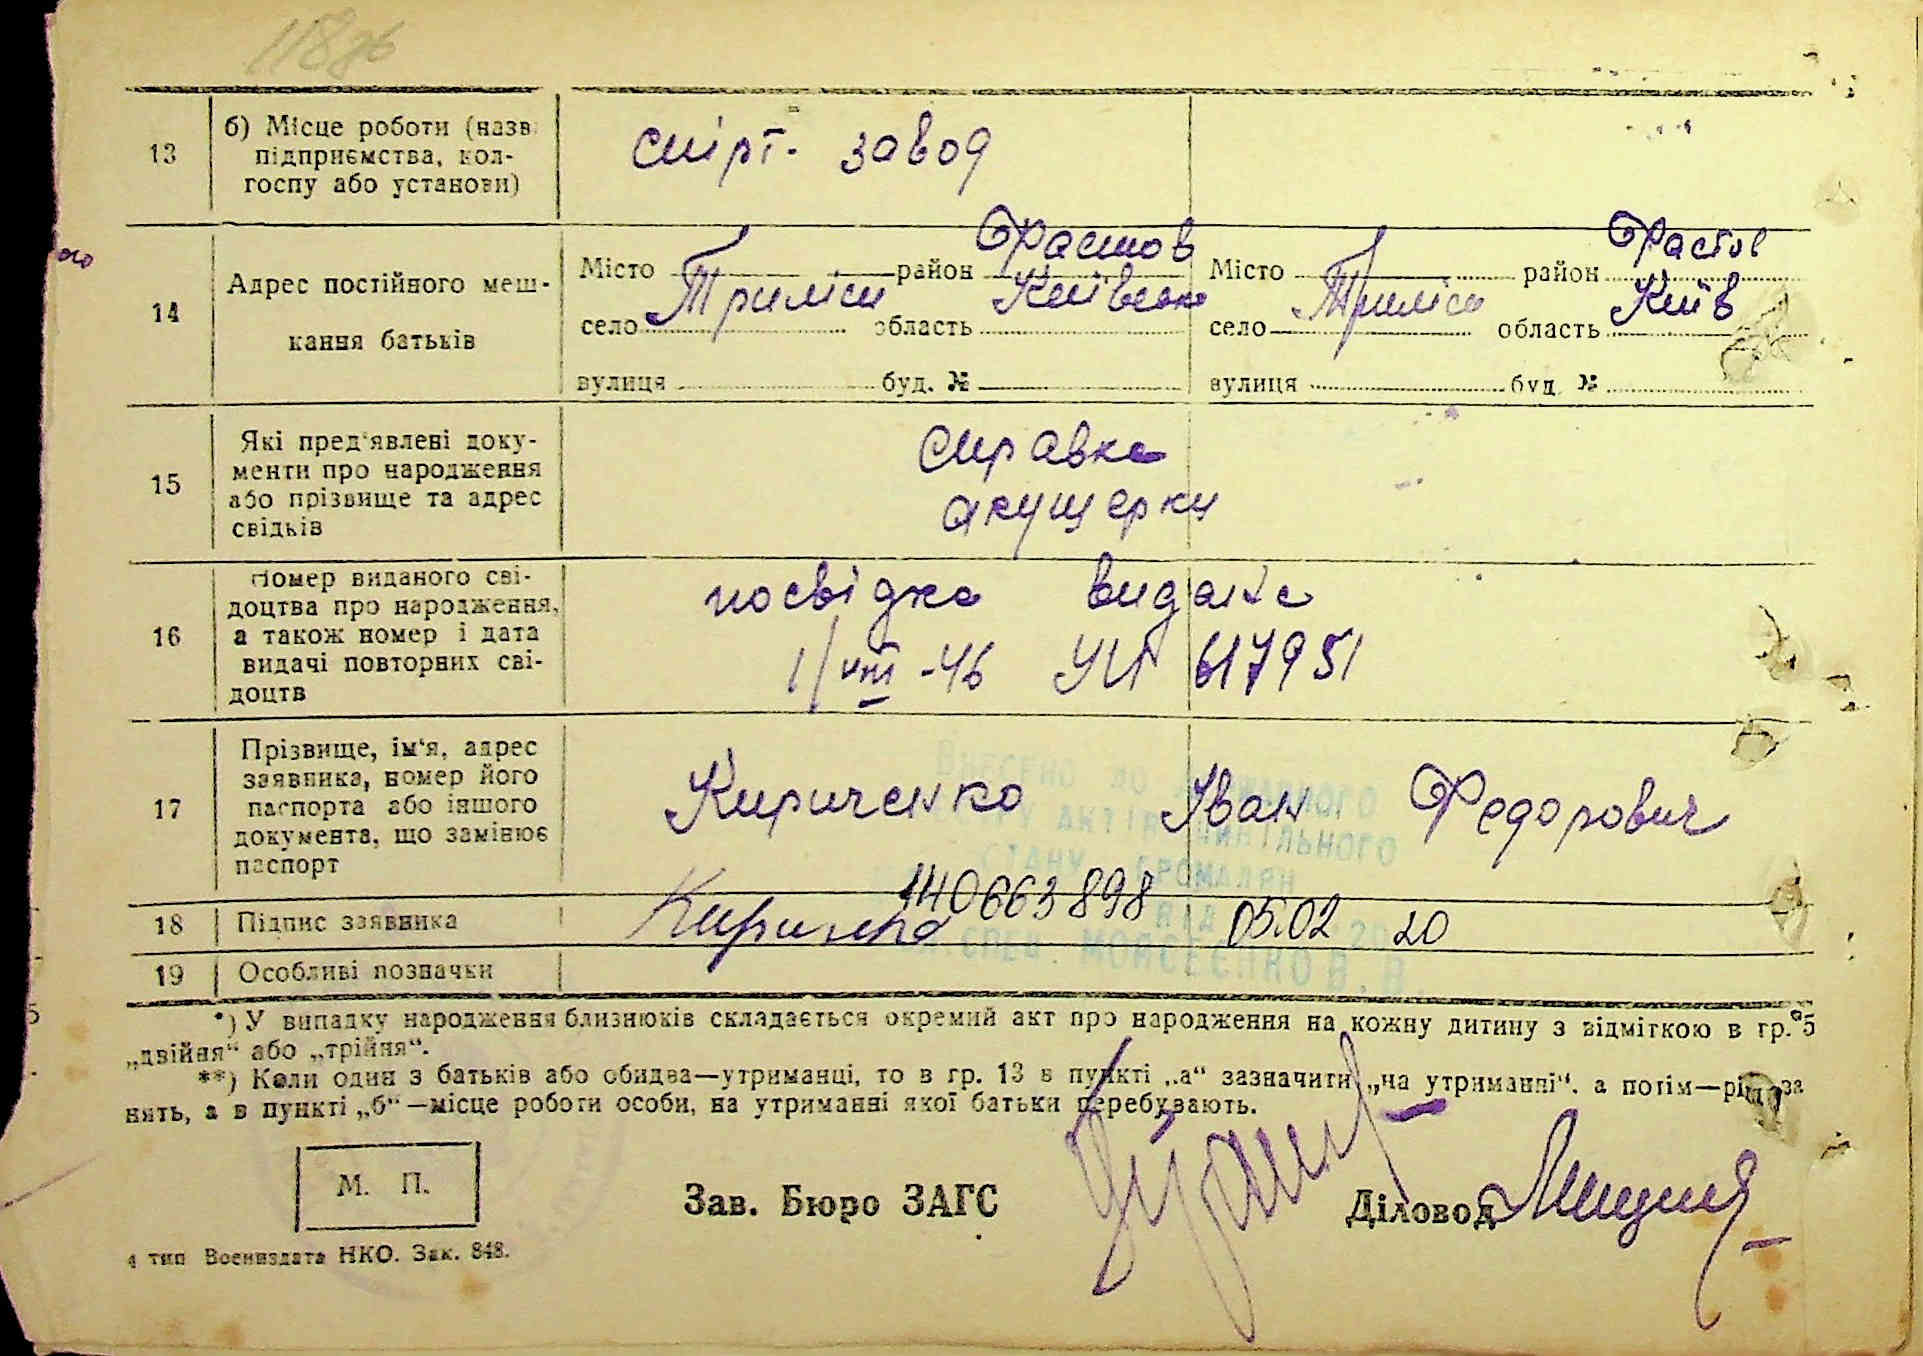 118зв
13
б) Місце роботи (назв
підприємства, кол-
госпу або установи)
спірт- завод
14
Адрес постійного меш-
кання батьків
Місто район Фастов
село Триліси область Київська
вулиця буд. №
Місто район Фастов
село Триліси область Київ
вулиця буд. №
15
Які пред'явлені доку-
менти про народження
або прізвище та адрес
свідків
справка
акушерки
16
Номер виданого сві-
доцтва про народження,
а також номер і дата
видачі повторних сві-
доцтв
посвідка видана
1/VIII-46 УИ 617951
17
Прізвище, ім'я, адрес
заявника, номер його
паспорта або іншого
документа, що замінює
паспорт
Кириченко Іван Федорович
Внесено до Державного
реєстру актів цивільного
стану громадян
140663898 від 05.02 2020
спец. Моисеєнко В.В.
18
Підпис заявника
19
Особливі позначки
*) У випадку народження близнюків складається окремий акт про народження на кожну дитину з відміткою в гр. 5
„двійня“ або „трійня“.
**) Коли один з батьків або обидва—утриманці, то в гр. 13 в пункті „а“ зазначити „на утриманні“, а потім—рід за
нять, а в пункті „б“—місце роботи особи, на утриманні якої батьки перебувають.
М. П.
Зав. Бюро ЗАГС
Діловод
4 тип Воениздата НКО. Зак. 848.